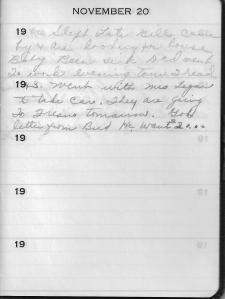 NOVEMBER 20
19 Slept Late Bill Came
by & are looking for house
Baby Been sick Dad went
To work evening tour I read
1943. Went with Mrs
to take care. They are going
To Fresno tomorrow. Got
letter from Bud He Want $20.00
19
19
19